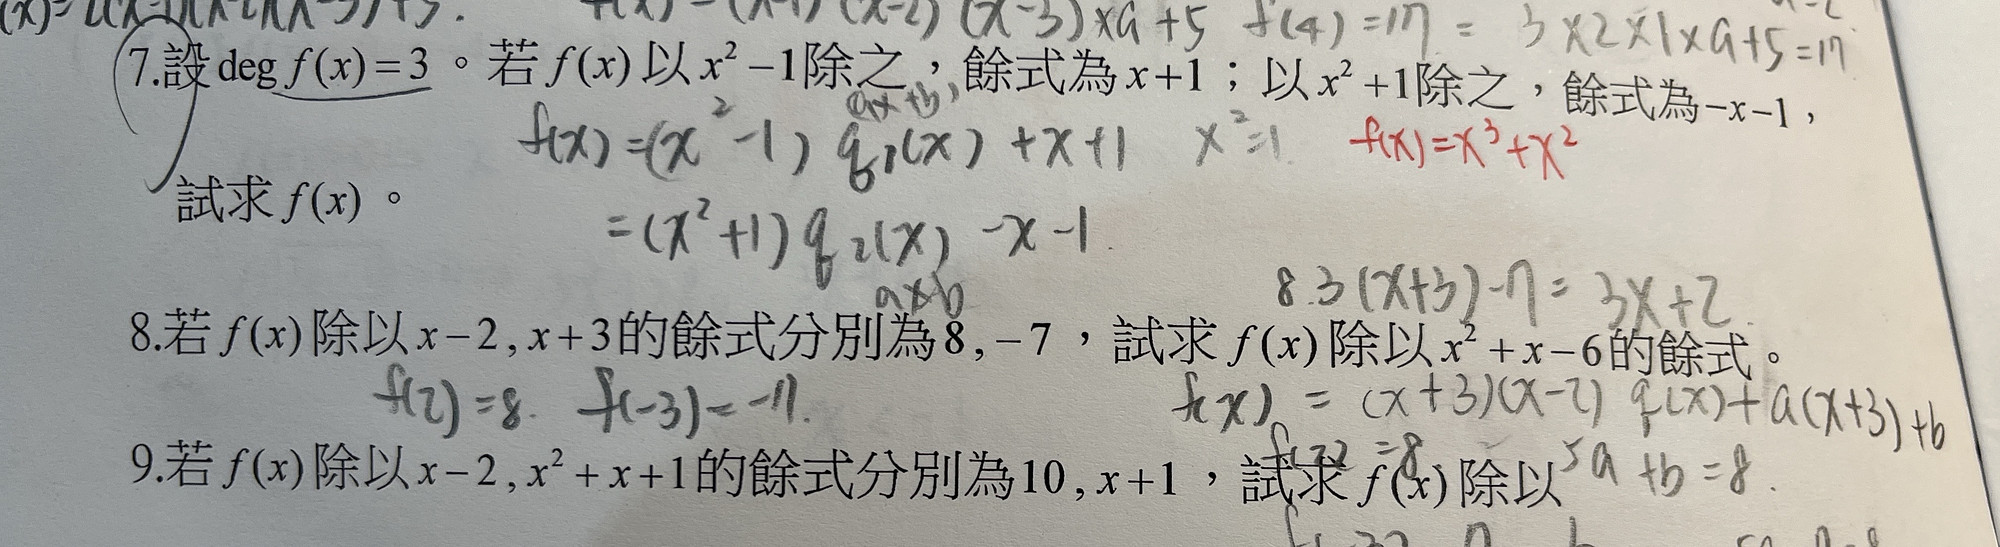 f(x)=(x-1)(x-2)(x-3)×a+5 f(4)=17= 3×2×1×a+5=17
7.設deg f(x)=3。若f(x)以x²-1除之，餘式為x+1；以x²+1除之，餘式為-x-1，
(ax+b)
f(x)=(x²-1) q₁(x)+x+1 x²=1. f(x)=x³+x²
試求f(x)。
=(x²+1) q₂(x) -x-1.
ax+b
8.3(x+3)-7=3x+2
8.若f(x)除以x-2,x+3的餘式分別為8,-7，試求f(x)除以x²+x-6的餘式。
f(2)=8. f(-3)=-7. f(x)=(x+3)(x-2) q(x)+a(x+3)+b
f(2)=8 5a+b=8.
9.若f(x)除以x-2,x²+x+1的餘式分別為10,x+1，試求f(x)除以